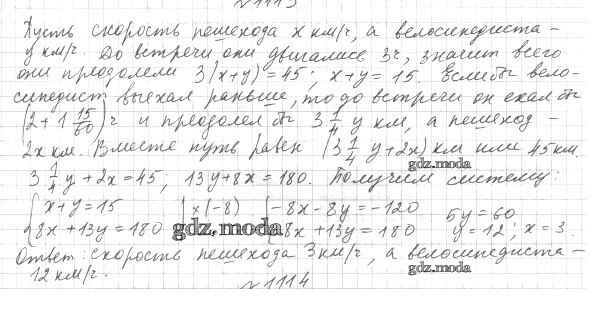 №1113
Пусть скорость пешехода x км/ч, а велосипедиста –
y км/ч. До встречи они двигались 3ч, значит всего
они преодолели 3(x+y)=45; x+y=15. Если бы вело-
сипедист выехал раньше, то до встречи он ехал бы
(2+1 15/60) ч и преодолел бы 3 1/4 y км, а пешеход –
2x км. Вместе путь равен (3 1/4 y+2x) км или 45 км.
gdz.moda
3 1/4 y+2x=45, 13y+8x=180. Получим систему:
{x+y=15 |x(-8) {-8x-8y=-120 5y=60
{8x+13y=180 {8x+13y=180 y=12; x=3.
gdz.moda
Ответ: скорость пешехода 3 км/ч, а велосипедиста –
12 км/ч.
gdz.moda
№1114